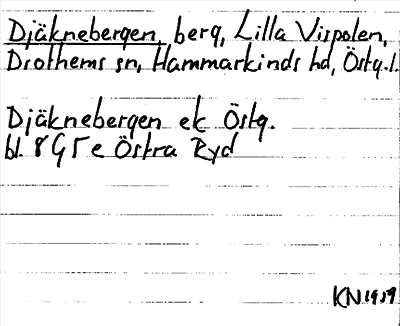 Djäknebergen, berg, Lilla Vispolen,
Drothems sn, Hammarkinds hd, Östg.l.
Djäknebergen ek Östg.
bl. 8G5e Östra Ryd
KN1959